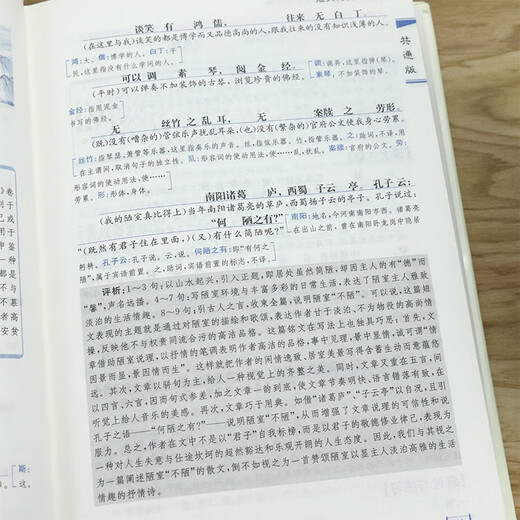 谈笑 有 鸿儒, 往来 无 白丁。
(在这里与我)谈笑的都是博学而又品德高尚的人,跟我往来的没有知识浅薄的人。
鸿:大。儒:博学的人。白丁:平
民,这里指没有什么学问的人。
可以 调 素 琴,阅 金经。
调:调弄,这里指弹(琴)。
素琴:不加装饰的琴。
(平时)可以弹奏不加装饰的古琴,浏览珍贵的佛经。
金经:指用泥金
书写的佛经。
无 丝竹 之 乱耳,无 案牍 之 劳形。
(既)没有(嘈杂的)管弦乐声扰乱耳朵,(也)没有(繁杂的)官府公文使我身心劳累。
丝竹:指琴瑟、箫管等乐器,这里指奏乐的声音。丝,指弦乐器。竹,指管乐器。之:助词,不译,用
在主谓间,取消句子的独立性。乱:形容词的使动用法,使……乱,扰乱。
案牍:官府的公文。劳:
形容词的使动用法,使……
劳累。形:形体,身体。
南阳诸葛 庐,西蜀 子云 亭。孔子云:
(我的陋室真比得上)当年南阳诸葛亮的草庐,西蜀扬子云的亭子。孔子说过:
“何 陋之有?”
“(既然有君子住在里面,)(又)有什么简陋呢?”
南阳:地名,今河南南阳市西。诸葛亮
在出山之前,曾在南阳卧龙岗中隐居
躬耕。孔子云:孔子说,云,说。何陋之有:即“有何之
陋”,属于宾语前置。之,助词,宾语前置的标志,不译。
评析:1~3句:以山水起兴,引入正题,即居处虽然简陋,却因主人的有“德”而
“馨”,声名远播。4~7句:写陋室环境与丰富多彩的日常生活,表达了陋室主人雅致
淡泊的生活情趣。8~9句:引古人之言,收束全篇,说明陋室“不陋”。可以说,这篇短
文表现的主题就是通过对陋室的描绘和歌颂,表达作者甘于淡泊、不为物役的高尚情
操,反映他不与权贵同流合污的高洁品格。这篇铭文在写法上也独具巧思:首先,文
章借助陋室说理,以抒情的笔调表明作者高洁的品格,事中见理,景中显情,诚可谓“情
因景而显,景因情而生”。这种就把作者的闲情逸致、居室美景写得含蓄生动而意蕴悠
远。其次,文章以骈句为主,给人一种视觉上的齐整之美。同时,文章又重在五言,间
以四言、六言,因而句式参差,加之文章一韵到底,使文章节奏明快、语言错落有致,在
听觉上给人音乐的美感。再次,文章巧于用典。如借“诸葛庐”、“子云亭”以自况,且引
孔子之语——“何陋之有?”——说明陋室“不陋”,从而增强了文章说理的可信性和说
服力。总之,作者在文中不是以“君子”自我标榜,而是以君子的敬德修业律己,表现为
一种对人生失意与仕途坎坷的超然豁达和乐观开朗的人生态度。因此,我们与其视之
为一篇阐述陋室“不陋”的散文,倒不如视之为一首赞颂陋室以显主人淡泊高雅的生活
情趣的抒情诗。
共通版